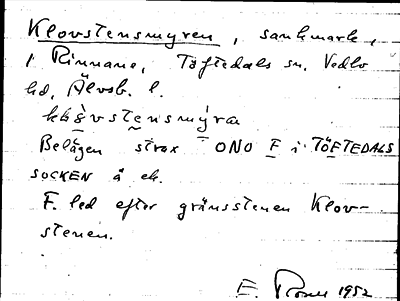 Klovstensmyren, sankmark,
i Rinnane, Töftedals sn, Vedbo
hd, Älvsb. l.
Belägen strax ONO F i TÖFTEDALS
SOCKEN å ek.
F. led efter gränsstenen Klov-
stenen.
1952